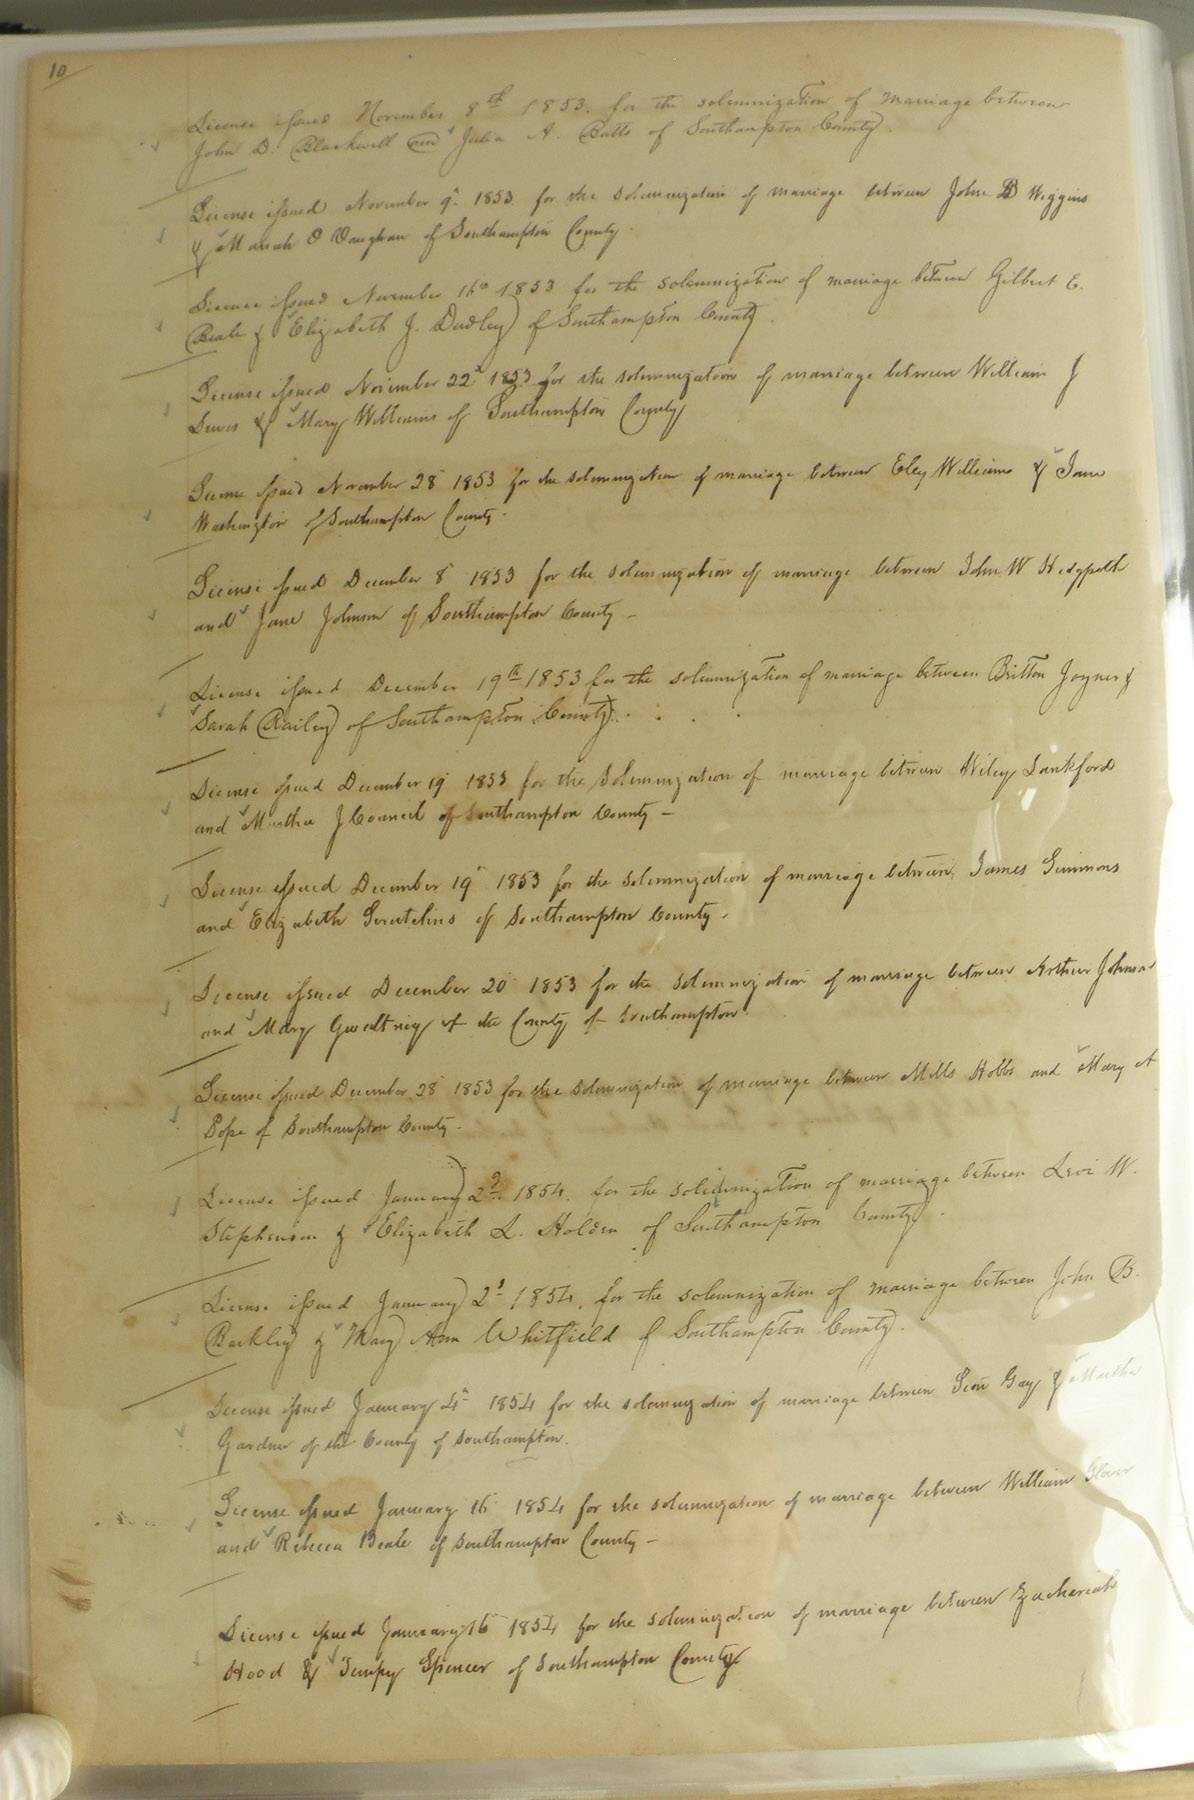 10
License issued November 8th 1853. for the solemnization of marriage between
John D. Blackwell and Julia A. Batts of Southampton County.
License issued November 9th 1853 for the solemnization of marriage between John B Wiggins
& Mariah O Vaughan of Southampton County.
License issued November 16th 1853 for the solemnization of marriage between Gilbert E.
Beale & Elizabeth J. Dudley of Southampton County.
License issued November 22d 1853 for the solemnization of marriage between William J
& Mary Williams of Southampton County
License issued November 28 1853 for the solemnization of marriage between Eley Williams & Jane
Washington of Southampton County.
License issued December 8 1853 for the solemnization of marriage between John W Hedgpeth
and Jane Johnson of Southampton County –
License issued December 19th 1853 for the solemnization of marriage between Britton Joyner &
Sarah Bailey of Southampton County.
License issued December 19 1853 for the solemnization of marriage between Wiley Lankford
and Martha J Council of Southampton County –
License issued December 19th 1853 for the solemnization of marriage between James Simmons
and Elizabeth Scutchins of Southampton County.
License issued December 20 1853 for the solemnization of marriage between Arthur Johnson
and Mary Gwaltney of the County of Southampton.
License issued December 28 1853 for the solemnization of marriage between Mills Hobbs and Mary A
Pope of Southampton County.
License issued January 2d 1854. for the solemnization of marriage between Levi W.
Stephenson & Elizabeth L. Holden of Southampton County.
License issued January 2d 1854, for the solemnization of marriage between John B.
Barkley & Mary Ann Whitfield of Southampton County.
License issued January 4th 1854 for the solemnization of marriage between Gay & Martha
Gardner of the County of Southampton.
License issued January 16 1854 for the solemnization of marriage between William Glover
and Rebecca Beale of Southampton County –
License issued January 16 1854 for the solemnization of marriage between Zachariah
Hood & Tempy Spencer of Southampton County